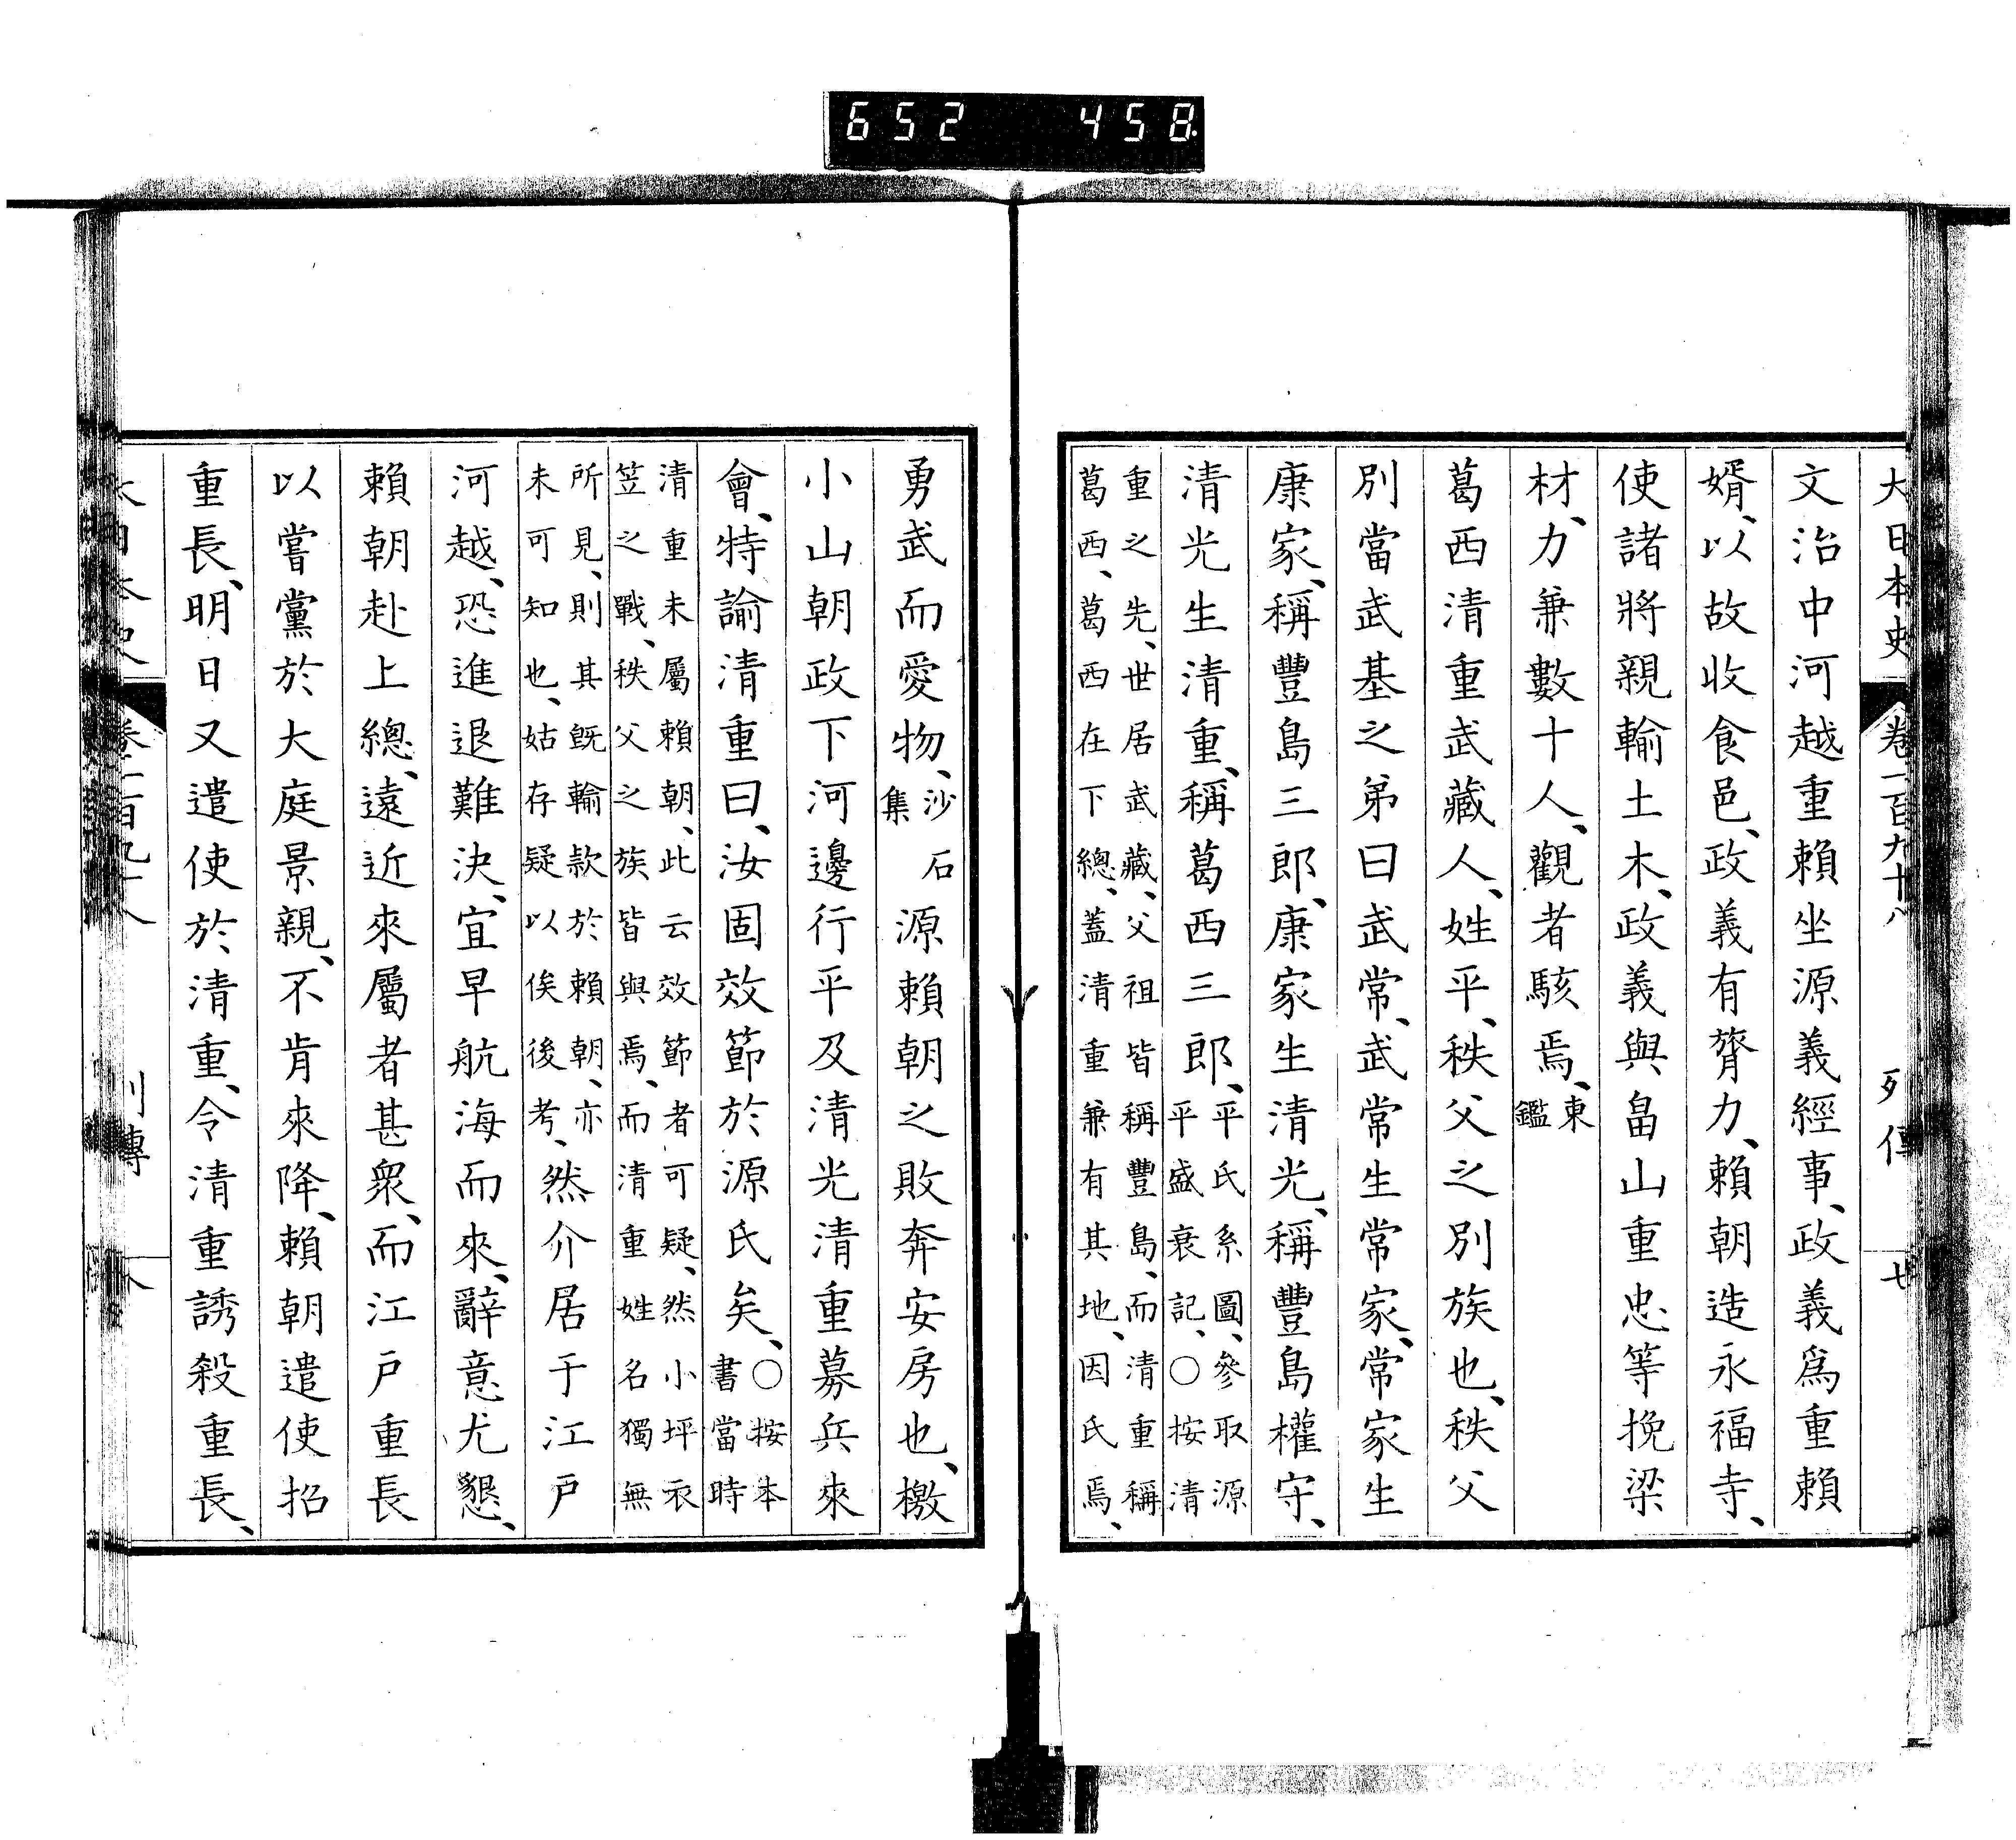 652 458
大日本史 卷一百九十八 列傳 廿
文治中河越重賴坐源義經事、政義爲重賴
婿、以故收食邑、政義有膂力、賴朝造永福寺、
使諸將親輸土木、政義與畠山重忠等挽梁
材、力兼數十人、觀者駭焉、東鑑
葛西清重武藏人、姓平、秩父之別族也、秩父
別當武基之弟曰武常、武常生常家、常家生
康家、稱豐島三郎、康家生清光、稱豐島權守、
清光生清重、稱葛西三郎、平氏系圖、參取源平盛衰記、○按清
重之先、世居武藏、父祖皆稱豐島、而清重稱
葛西、葛西在下總、蓋清重兼有其地、因氏焉、
勇武而愛物、沙石集源賴朝之敗奔安房也、檄
小山朝政下河邊行平及清光清重募兵來
會、特諭清重曰、汝固效節於源氏矣、○按本書當時
清重未屬賴朝、此云效節者可疑、然小坪衣
笠之戰、秩父之族皆與焉、而清重姓名獨無
所見、則其既輸款於賴朝、亦
未可知也、姑存疑以俟後考、然介居于江戶
河越、恐進退難決、宜早航海而來、辭意尤懇、
賴朝赴上總、遠近來屬者甚衆、而江戶重長
以嘗黨於大庭景親、不肯來降、賴朝遣使招
重長、明日又遣使於清重、令清重誘殺重長、